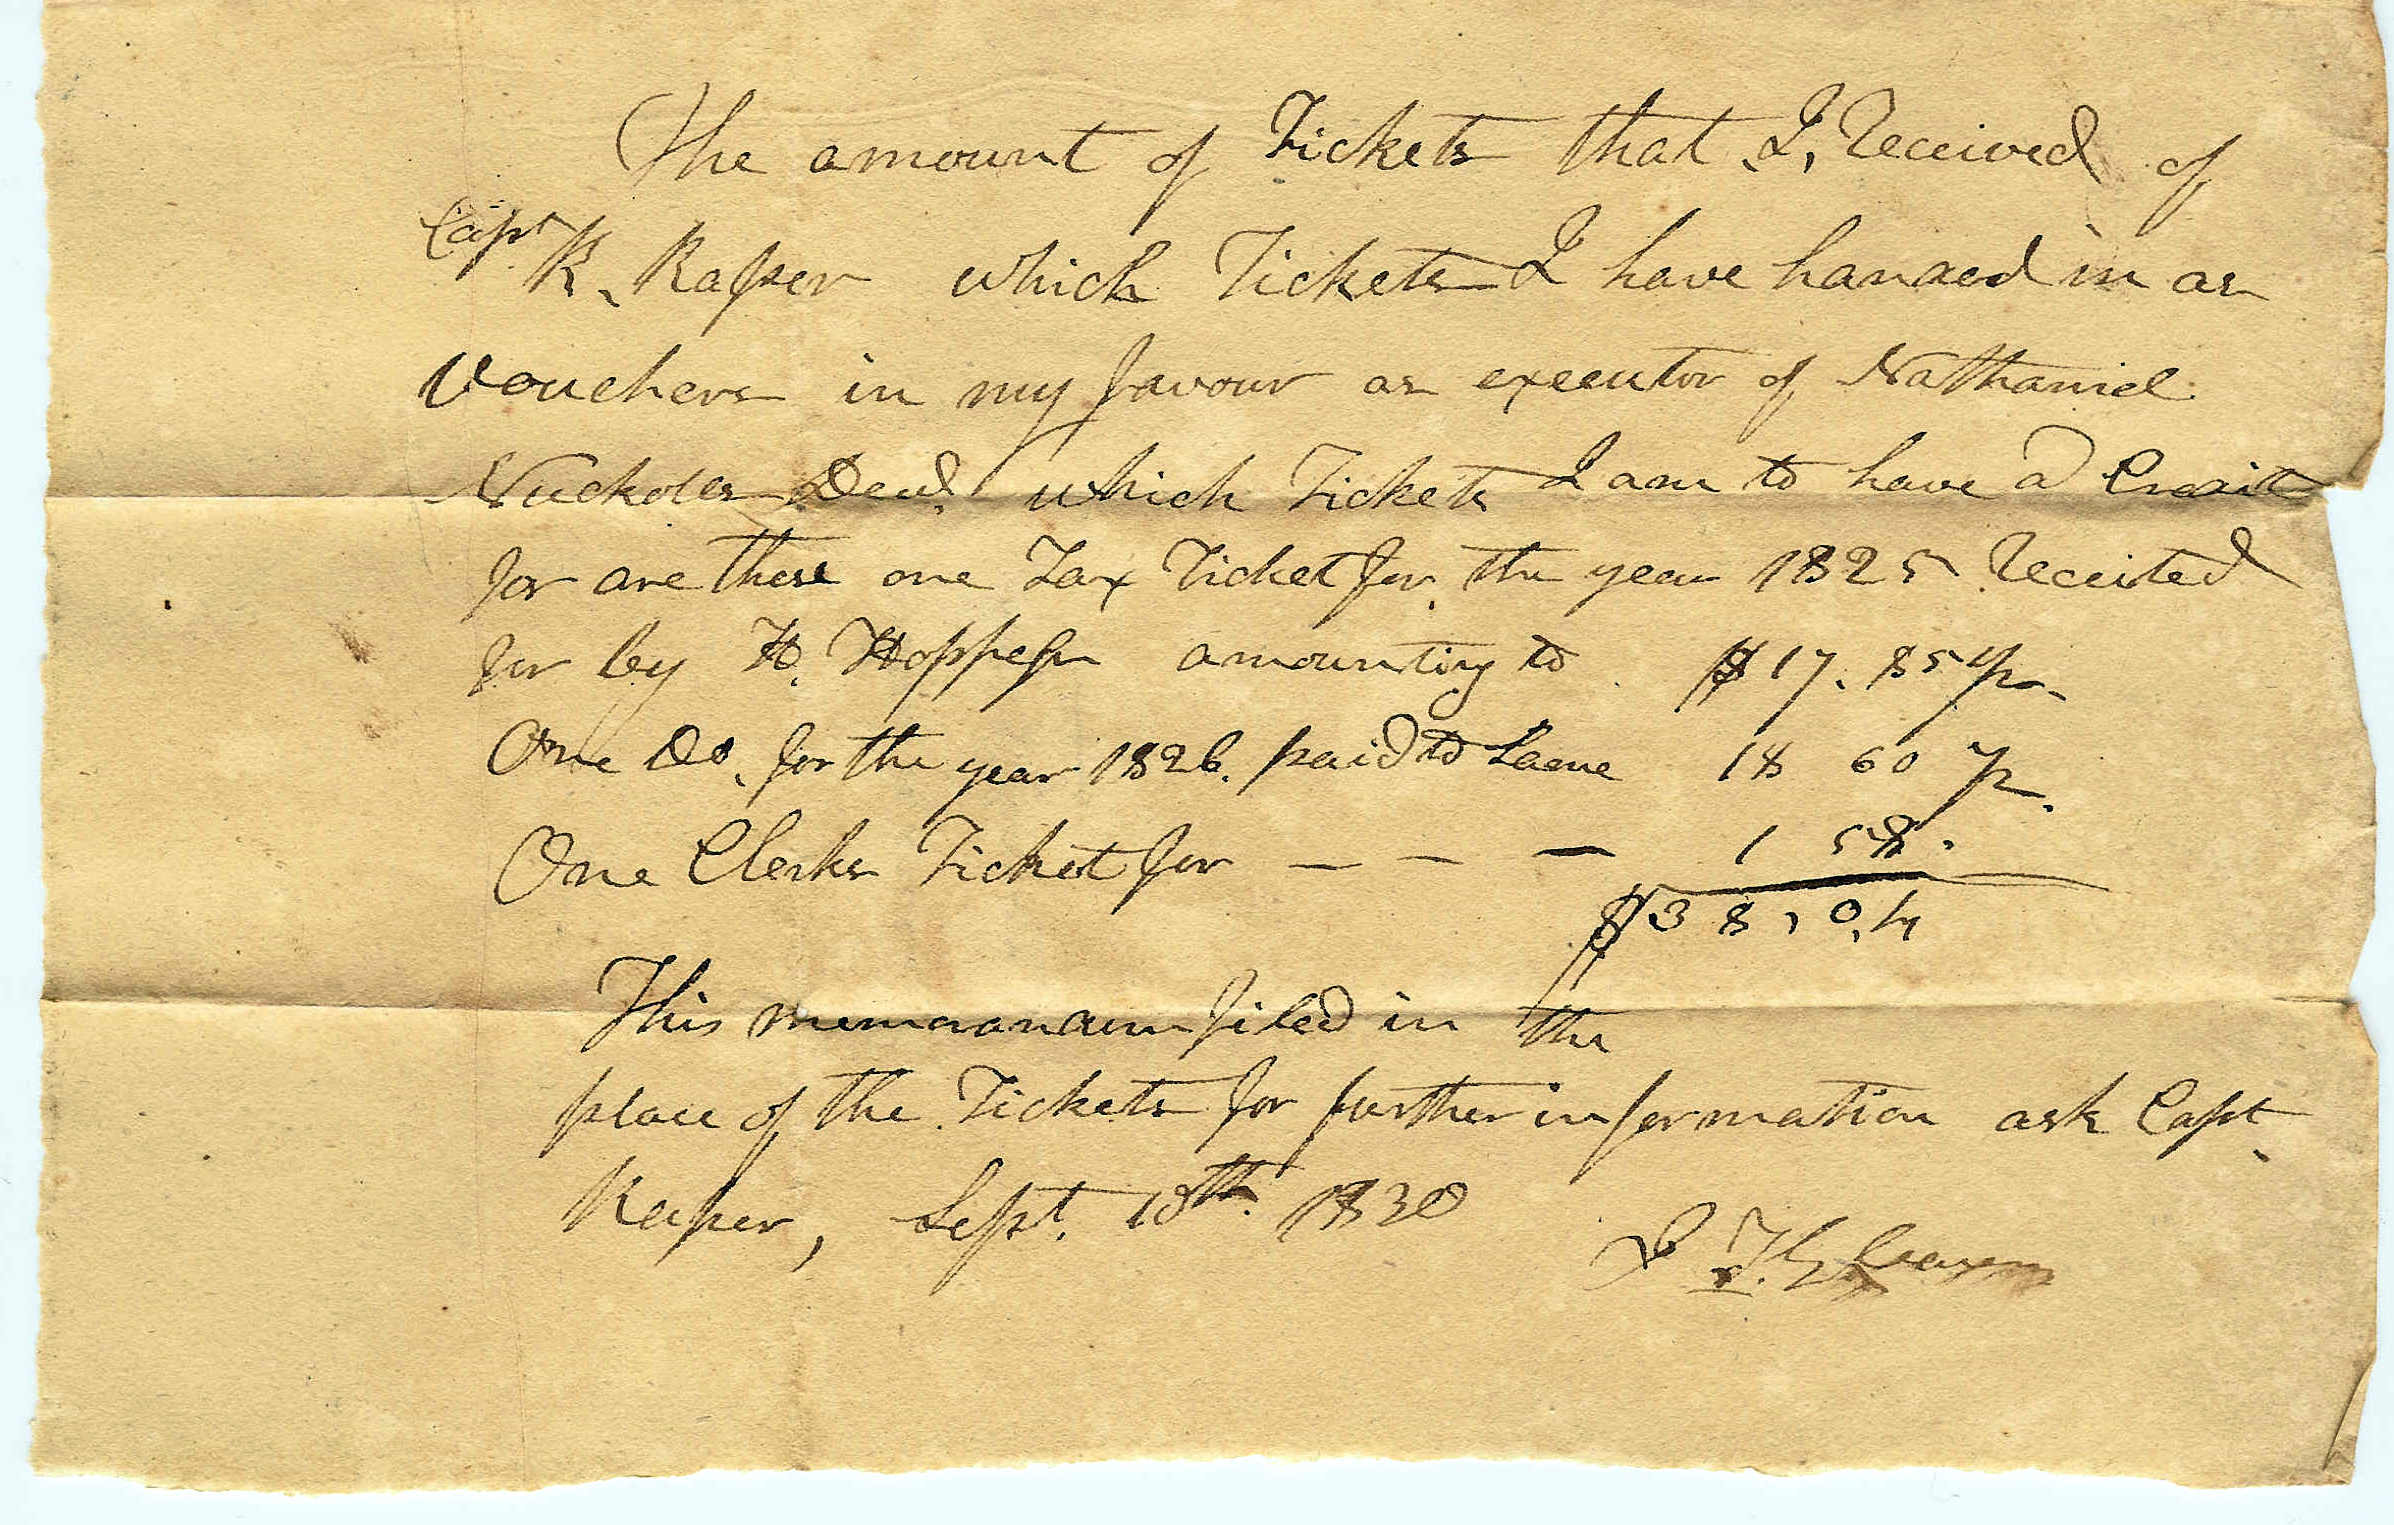 The amount of Tickets that I, Received of
Capt K. Kasper which Tickets I have handed in as
Vouchers in my favour as executor of Nathaniel
Nuckoles Decd. which Tickets I am to have a Credit
for are these one Tax Ticket for the year 1825 Receited
for by H. amounting to $17.85
One Do. for the year 1826. paid to Same 18 60
One Clerks Ticket for — — — 1 58.
$38,0,4
This memorandum filed in the
place of the Tickets for further information ask Capt.
Sept. 18th 1830